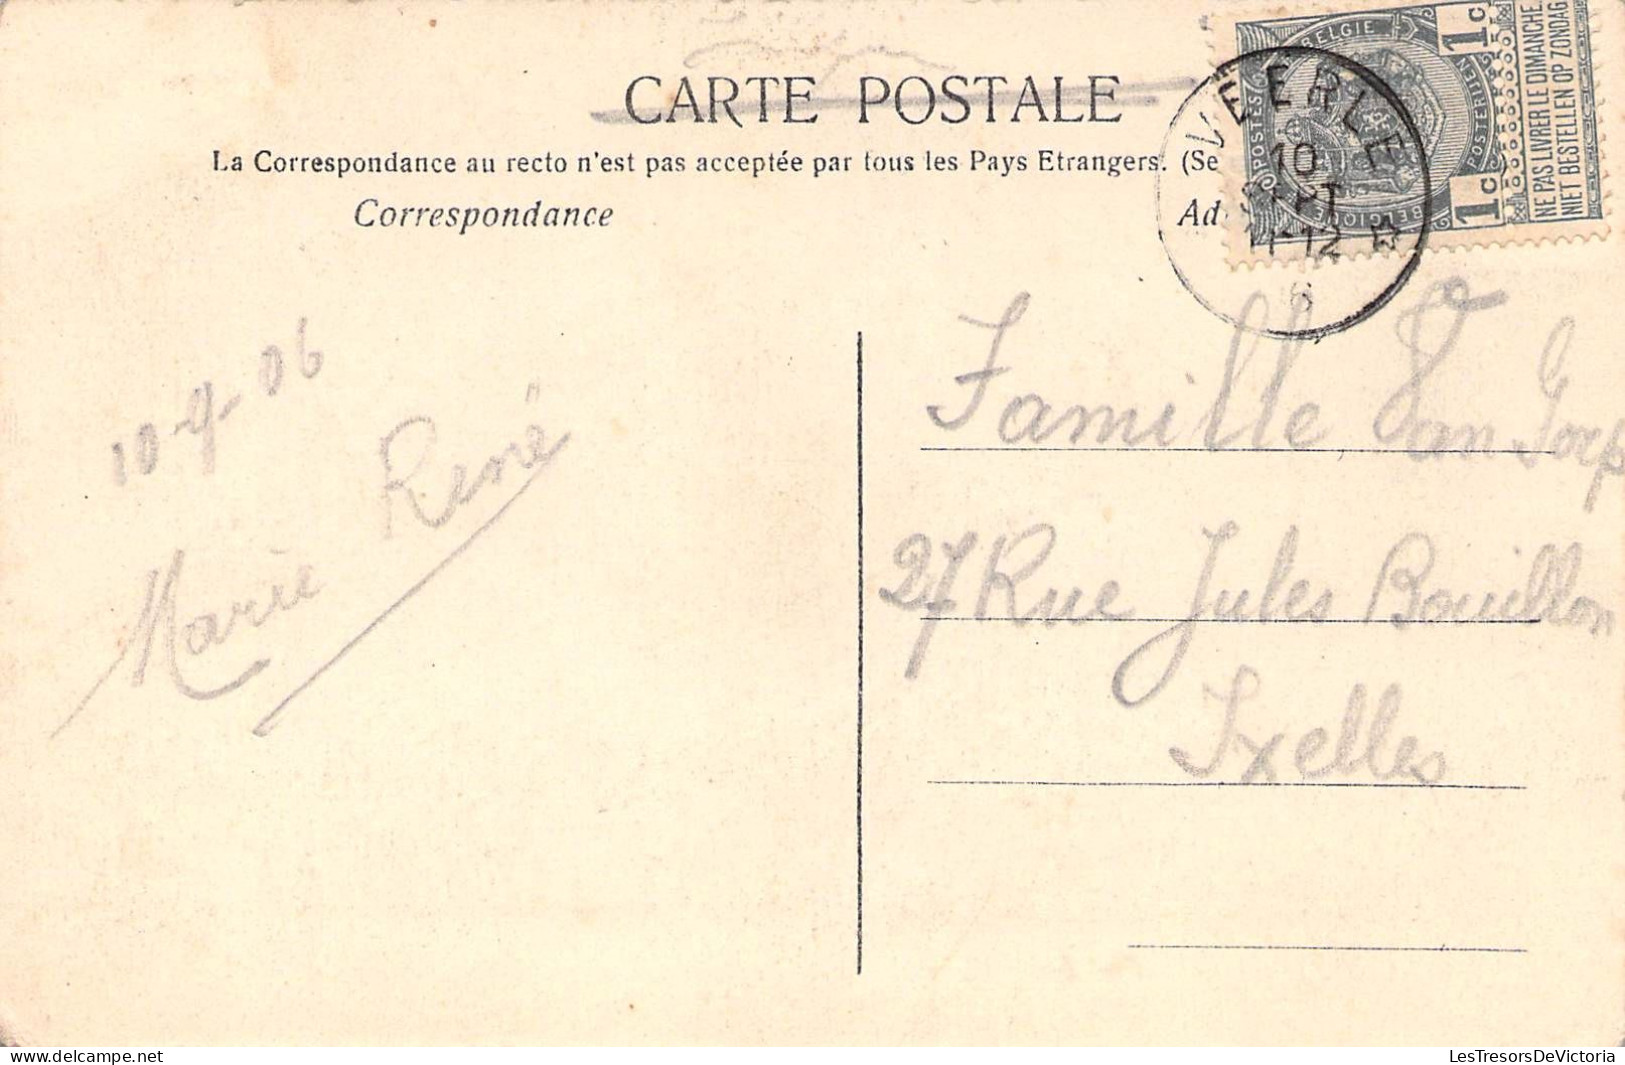 CARTE POSTALE
La Correspondance au recto n'est pas acceptée par tous les Pays Etrangers. (Se
Correspondance
Ad
BELGIE
POSTES
POSTERIJEN
BELGIQUE
1c
1c
NE PAS LIVRER LE DIMANCHE.
NIET BESTELLEN OP ZONDAG
VEERLE
10
SEPT
11-12
6
10-9-06
Marie René
Famille Van Gorp
27 Rue Jules Bouillon
Ixelles
LesTresorsDeVictoria
delcampe.net